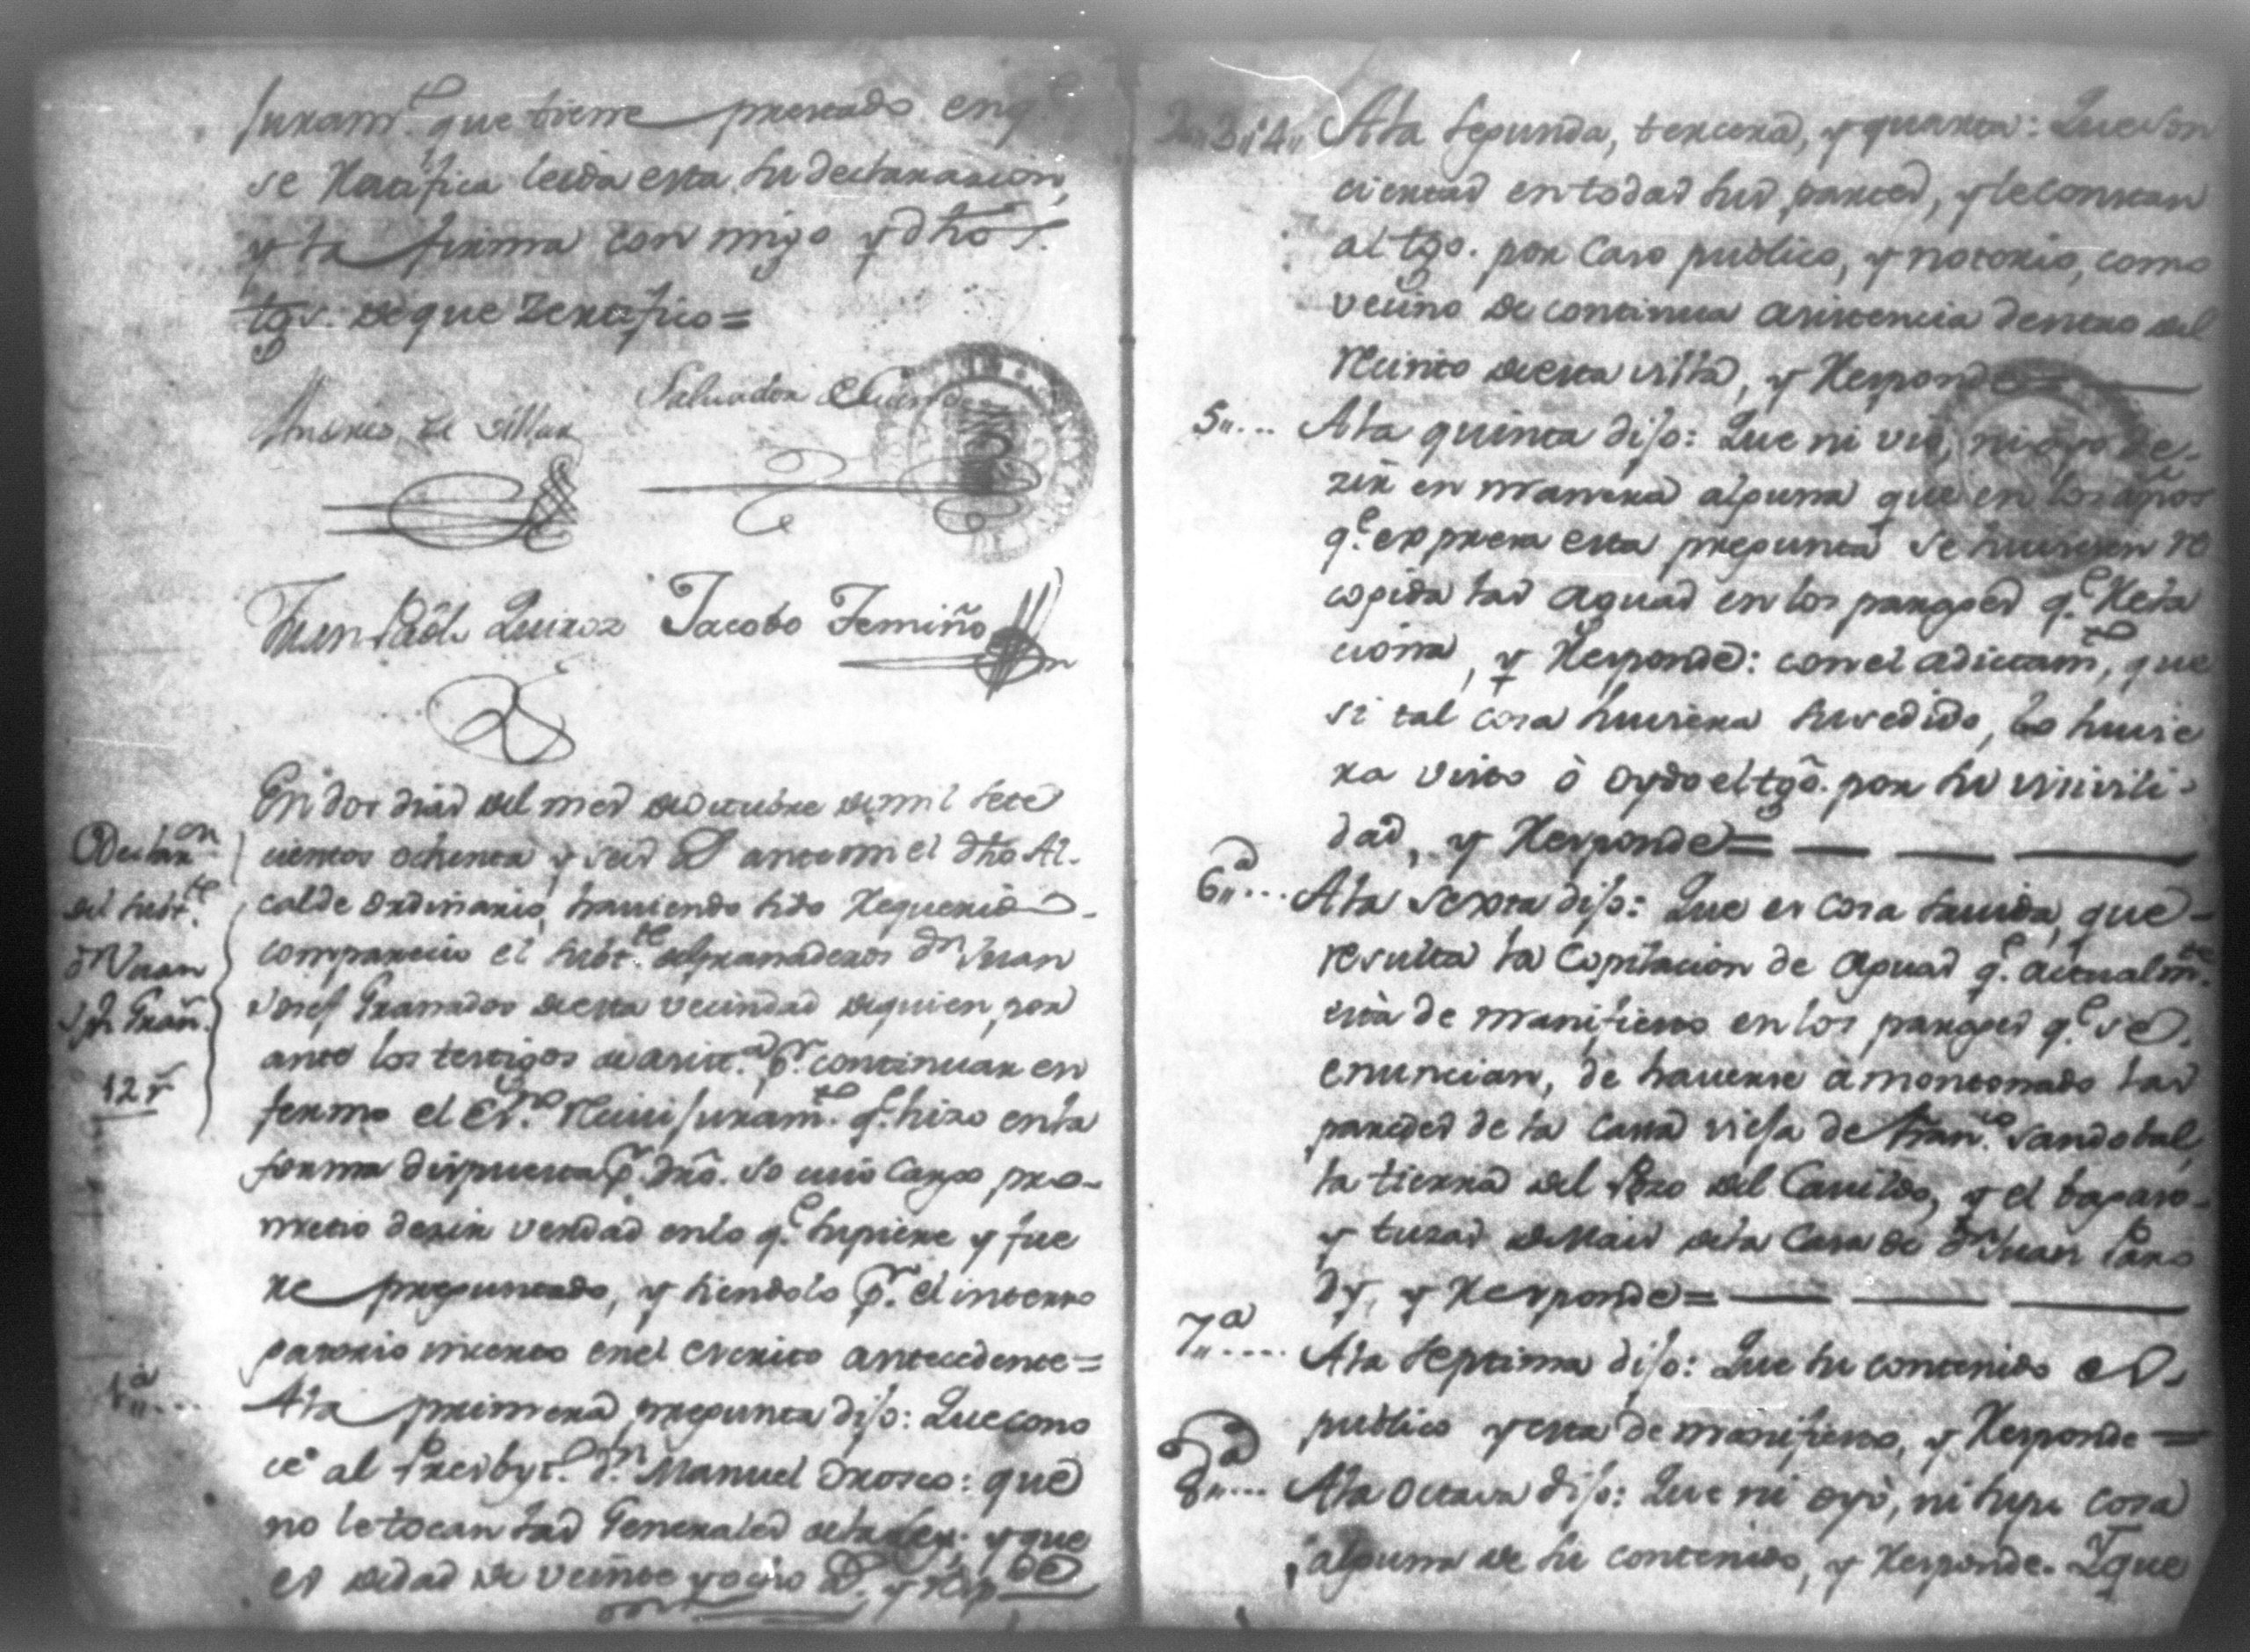 Juram.to que tiene prestado en q.e
se Ratifica leida esta su declaracion,
y la firma con migo y dhos
tgs. de que Zertifico=
Andres de Villar
Salvador
Juan Pablo Quiroz Jacobo Temiño
En dos dias del mes de Octubre de mil sete
cientos ochenta y seis a.s ante mi el dho Al-
calde ordinario, haviendo sido Requerido
comparecio el subt.te de granaderos d.n Juan
Josef Granados de esta vecindad de quien, por
ante los testigos de asist.a p.r continuar en
fermo el Es.no Recivi juram.to q.e hizo en la
forma dispuesta p.r dro. so cuio cargo pro-
metio dezir verdad en lo q.e supiere y fue
re preguntado, y siendolo p.r el interro
gatorio incerto en el escrito antecedente=
Declar.on
del subt.te
d.n Juan
Jph Gran.s
12 r.s
1.a.... Ala primera pregunta dijo: Que cono
ce al Presbyt.o d.n Manuel Orosco: que
no le tocan las Generales de la ley; y que
es de edad de veinte y ocho a.s y Resp.de
2.. 3.. 4.. Ala segunda, tercera, y quarta: Que son
ciertas en todas sus partes, y le constan
al tgo. por caso publico, y notorio, como
vecino de continua asistencia dentro del
recinto de esta villa, y Responde=
5.... Ala quinta dijo: Que ni vio, ni oyo de-
zir en manera alguna que en los años
q.e expresa esta pregunta se huviesen re
cogido las aguas en los parages q.e Rela
ciona, y Responde: con el aditam.to, que
si tal cosa huviera susedido, lo huvie
ra visto ò oydo el tgo. por su vivili-
dad, y Responde=
6.a... Ala sexta dijo: Que es cosa savida, que
resulta la copilacion de aguas q.e actualm.te
està de manifiesto en los parages q.e se
enuncian, de haverse àmontonado las
paredes de la casa vieja de Fran.co Sandobal,
la tierra del Pozo del Cavildo, y el bagaso
y tuzas de Mais de la Casa de d.n Juan Paro
dy, y Responde=
7.a.... Ala septima dijo: Que su contenido es
publico y esta de manifiesto, y Responde=
8.a.... Ala octava dijo: Que ni oyò, ni supo cosa
alguna de su contenido, y Responde. Y que